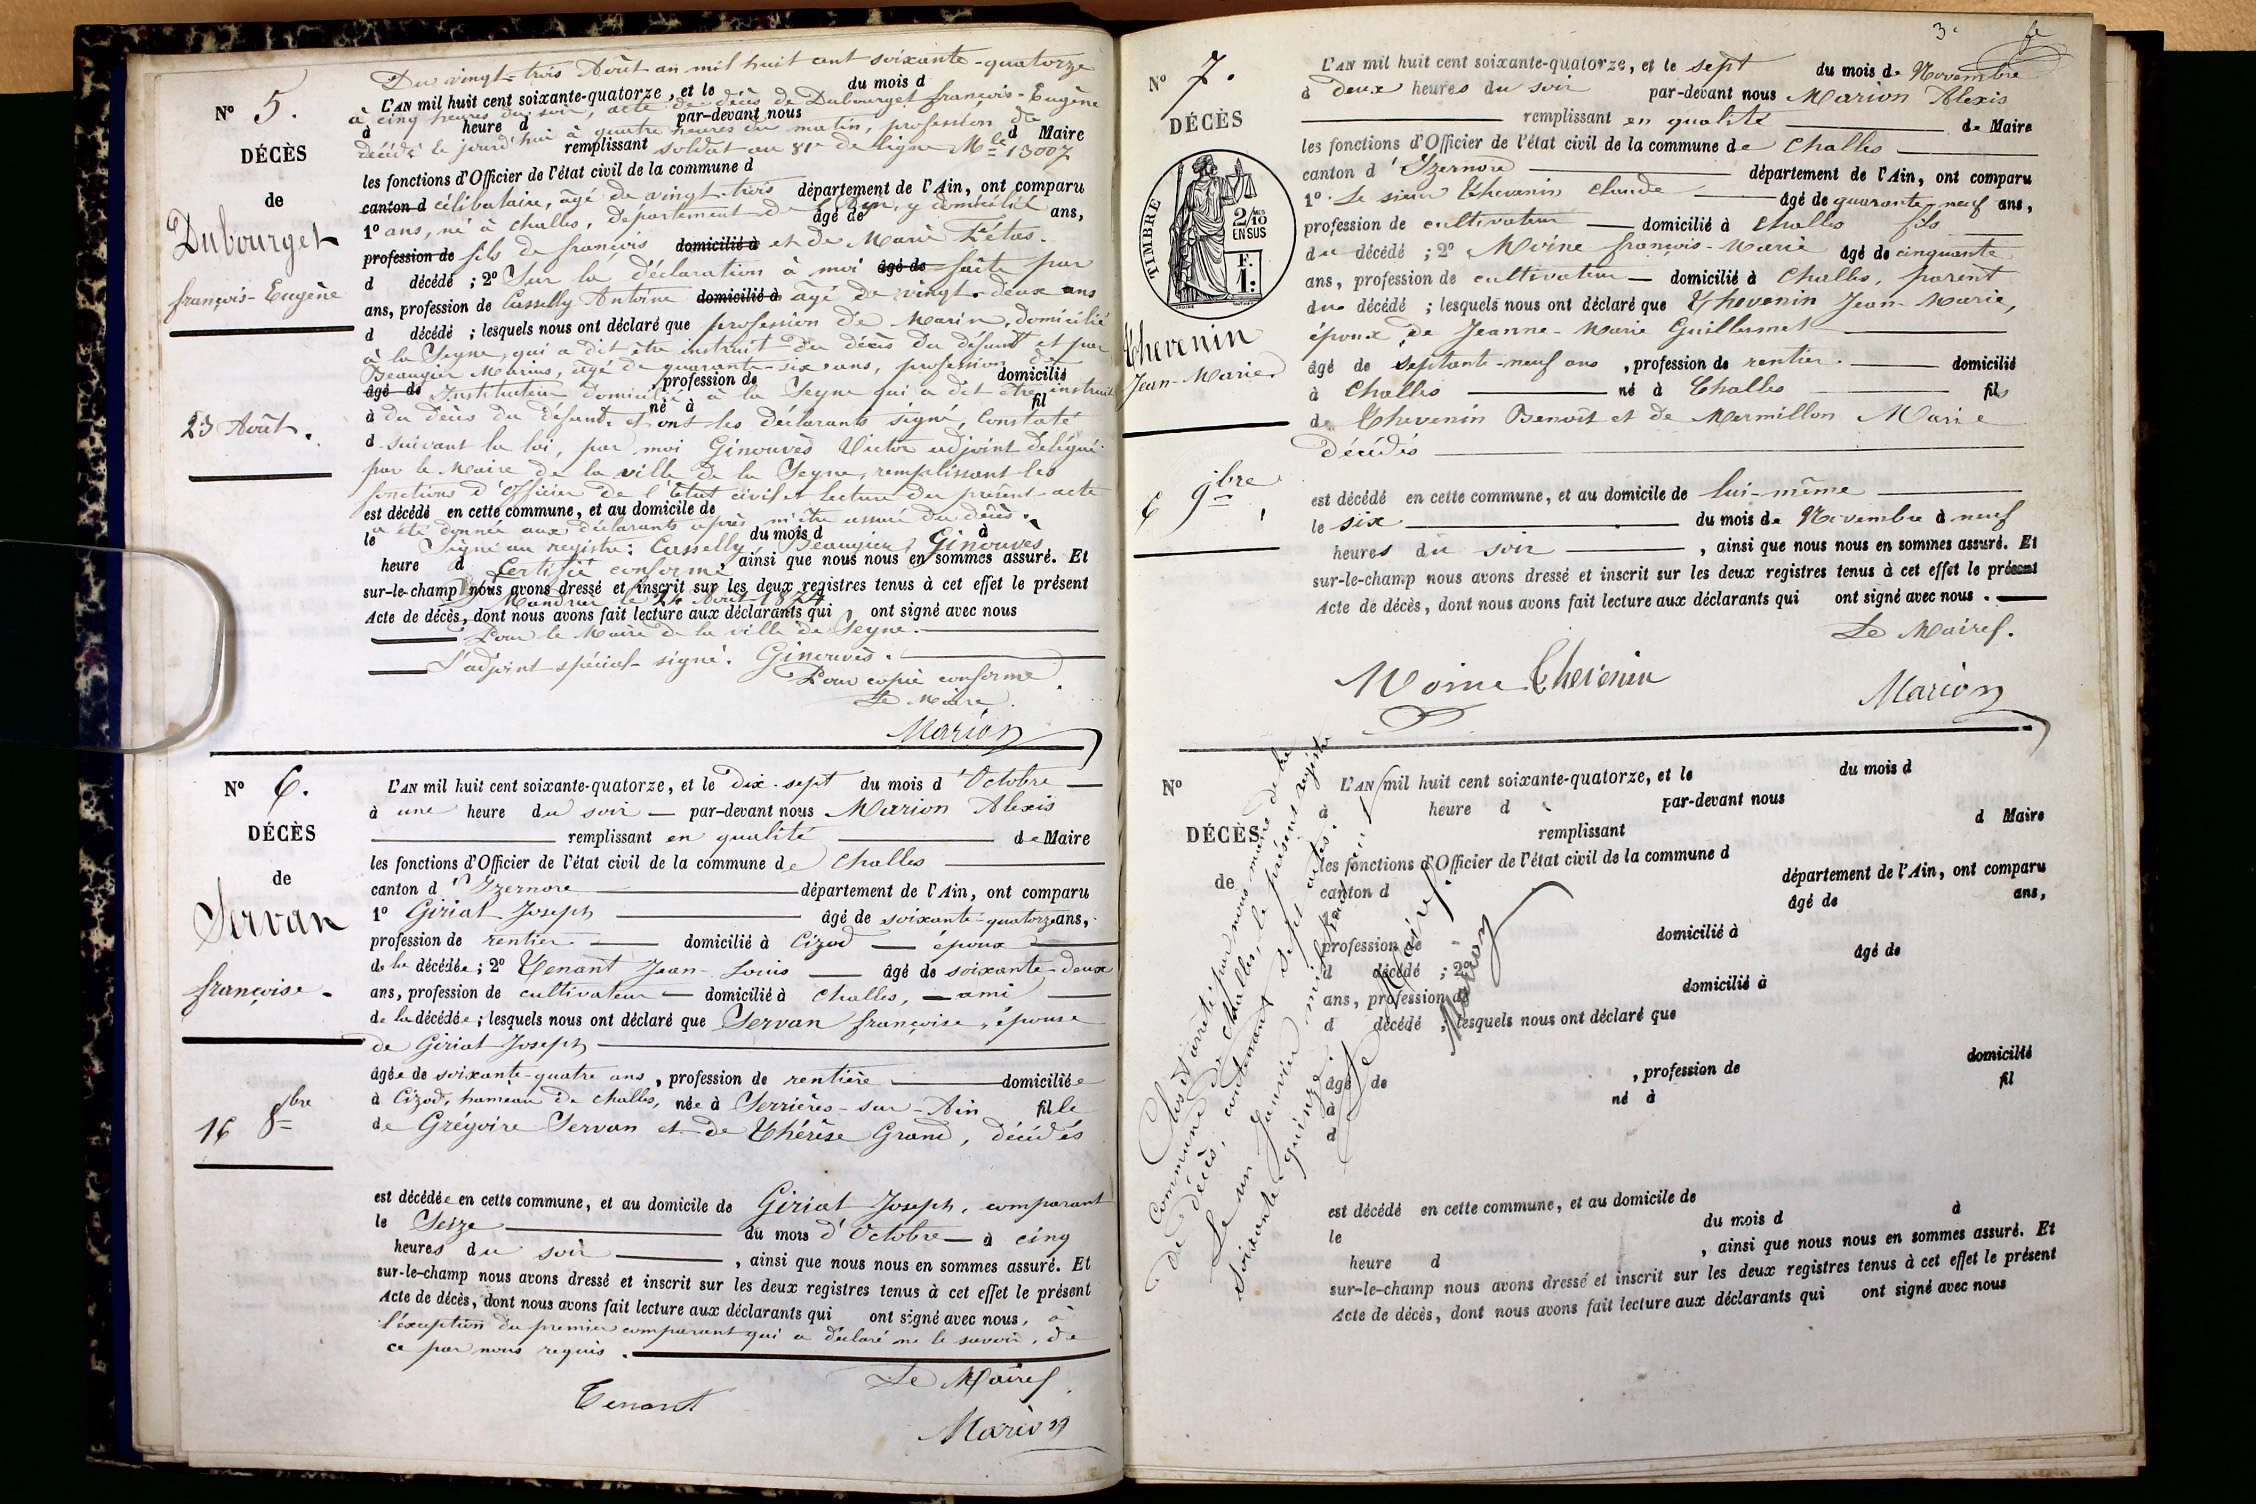 Du vingt-trois Août an mil huit cent soixante-quatorze
N° 5.
L'AN mil huit cent soixante-quatorze, et le du mois d
à cinq heures du soir, acte de décès de Dubourget françois-Eugène
à heure d par-devant nous
décédé le jourd'hui à quatre heures du matin, profession de
remplissant d Maire
soldat au 81e de ligne Mle 13007
DÉCÈS
de
Dubourget
françois-Eugène
23 Août.
les fonctions d'Officier de l'état civil de la commune d
canton d célibataire, âgé de vingt-trois département de l'Ain, ont comparu
1° ans, né à Challes, département de l'Ain, y domicilié âgé de ans,
profession de fils de françois domicilié à et de Marie
d décédé ; 2° Sur la déclaration à moi âgé de faite par
ans, profession de Casselly Antoine domicilié à âgé de vingt-deux ans
d décédé ; lesquels nous ont déclaré que profession de Marin, domicilié
à la Seyne, qui a dit être instruit du décès du défunt et par
Beaugier Marius, âgé de quarante-six ans, profession
âgé de Instituteur domicilié à la Seyne qui a dit être instruit
profession de domicilié
né à fil
à du décès du défunt et ont les déclarants signé, Constaté
d suivant la loi, par moi Ginouvès Victor adjoint délégué
par le Maire de la ville de la Seyne, remplissant les
fonctions d'officier de l'Etat civil et lecture du présent acte
est décédé en cette commune, et au domicile de
a été donnée aux déclarants après m'être assuré du décès.
le du mois d à
Signé au registre : Casselly, Beaugier, Ginouvès
heure d , ainsi que nous nous en sommes assuré. Et
Certifié conforme
sur-le-champ nous avons dressé et inscrit sur les deux registres tenus à cet effet le présent
St Mandrier le 24 Août 1874
Acte de décès, dont nous avons fait lecture aux déclarants qui ont signé avec nous
Pour le Maire de la ville de Seyne.
L'adjoint spécial signé : Ginouvès.
Pour copie conforme
Le Maire.
Marion
N° 6.
DÉCÈS
de
Servan
françoise.
16 8bre
L'AN mil huit cent soixante-quatorze, et le dix-sept du mois d'Octobre
à une heure du soir par-devant nous Marion Alexis
remplissant en qualité de Maire
les fonctions d'Officier de l'état civil de la commune de Challes
canton d'Izernore département de l'Ain, ont comparu
1° Giriat Joseph âgé de soixante-quatorze ans,
profession de rentier domicilié à Cizod époux
de la décédée ; 2° Tenant Jean-Louis âgé de soixante-deux
ans, profession de cultivateur domicilié à Challes, ami
de la décédée ; lesquels nous ont déclaré que Servan françoise, épouse
de Giriat Joseph
âgée de soixante-quatre ans, profession de rentière domiciliée
à Cizod, hameau de Challes, née à Serrières-sur-Ain fille
de Grégoire Servan et de Thérèse Grand, décédés
est décédée en cette commune, et au domicile de Giriat Joseph, comparant
le Seize du mois d'Octobre à cinq
heures du soir , ainsi que nous nous en sommes assuré. Et
sur-le-champ nous avons dressé et inscrit sur les deux registres tenus à cet effet le présent
Acte de décès, dont nous avons fait lecture aux déclarants qui ont signé avec nous, à
l'exception du premier comparant qui a déclaré ne le savoir, de
ce par nous requis.
Le Maire
Tenant
Marion
3e
N° 7.
DÉCÈS
TIMBRE
2/10 EN SUS
F. 1:
Thevenin
Jean-Marie
6 9bre
L'AN mil huit cent soixante-quatorze, et le sept du mois de Novembre
à deux heures du soir par-devant nous Marion Alexis
remplissant en qualité de Maire
les fonctions d'Officier de l'état civil de la commune de Challes
canton d'Izernore département de l'Ain, ont comparu
1° Le sieur Thevenin Claude âgé de quarante-neuf ans,
profession de cultivateur domicilié à Challes fils
du décédé ; 2° Moine françois-Marie âgé de cinquante
ans, profession de cultivateur domicilié à Challes, parent
du décédé ; lesquels nous ont déclaré que Thevenin Jean-Marie,
époux de Jeanne-Marie Guillermet
âgé de septante-neuf ans, profession de rentier domicilié
à Challes né à Challes fils
de Thevenin Benoît et de Mermillon Marie
décédés
est décédé en cette commune, et au domicile de lui-même
le six du mois de Novembre à neuf
heures du soir , ainsi que nous nous en sommes assuré. Et
sur-le-champ nous avons dressé et inscrit sur les deux registres tenus à cet effet le présent
Acte de décès, dont nous avons fait lecture aux déclarants qui ont signé avec nous.
Le Maire.
Moine Thevenin
Marion
N°
DÉCÈS
de
L'AN mil huit cent soixante-quatorze, et le du mois d
à heure d par-devant nous
remplissant d Maire
les fonctions d'Officier de l'état civil de la commune d
canton d département de l'Ain, ont comparu
1° âgé de ans,
profession de domicilié à
d décédé ; 2° âgé de
ans, profession de domicilié à
d décédé ; lesquels nous ont déclaré que
âgé de , profession de domicilié
à né à fil
d
est décédé en cette commune, et au domicile de
le du mois d à
heure d , ainsi que nous nous en sommes assuré. Et
sur-le-champ nous avons dressé et inscrit sur les deux registres tenus à cet effet le présent
Acte de décès, dont nous avons fait lecture aux déclarants qui ont signé avec nous
Clos et arrêté par nous maire de la
commune de Challes, le présent registre
de décès, contenant sept actes.
Le un Janvier mil huit cent
soixante quinze.
Le Maire
Marion